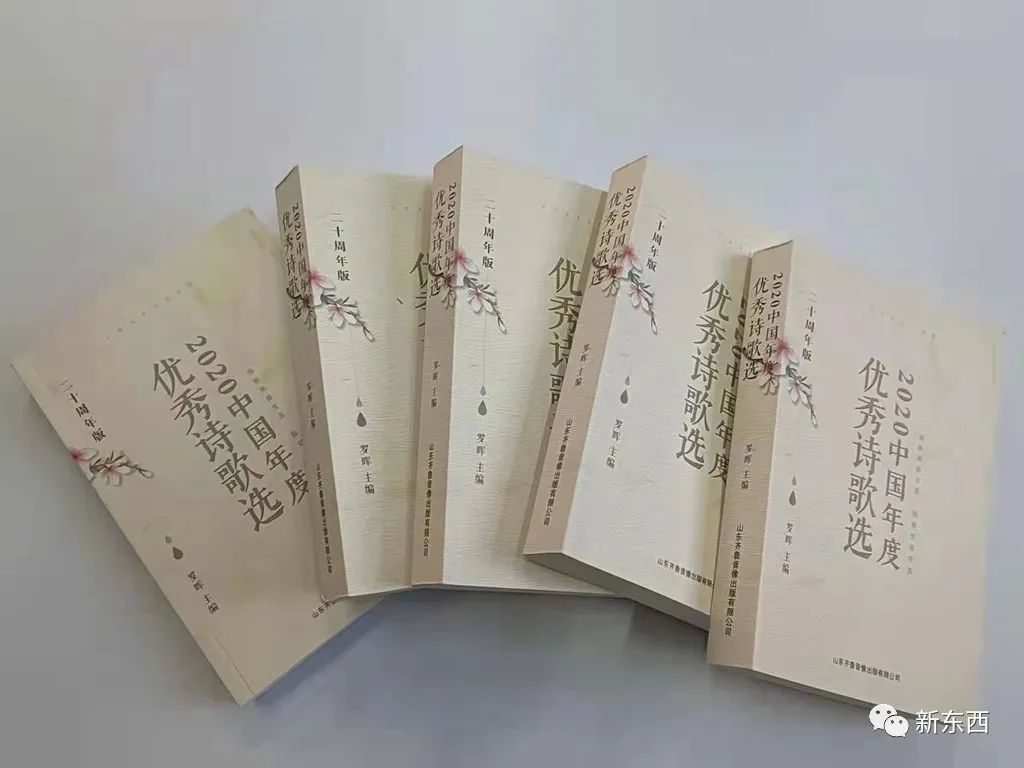 二十周年版
2020中国年度
优秀诗歌选
罗晖 主编
2020中国年度
优秀诗歌选
罗晖 主编
山东齐鲁音像出版有限公司
二十周年版
优
罗晖 主编
2020中国年度
优秀诗歌选
罗晖 主编
山东齐鲁音像出版有限公司
二十周年版
优秀诗歌
罗晖 主编
2020中国年度
优秀诗歌选
罗晖 主编
山东齐鲁音像出版有限公司
二十周年版
中国年度
优秀诗歌选
罗晖 主编
山东齐鲁音像出版有限
2020中国年度
优秀诗歌选
罗晖 主编
山东齐鲁音像出版有限公司
二十周年版
2020中国年度
优秀诗歌选
罗晖 主编
山东齐鲁音像出版有限公司
新东西